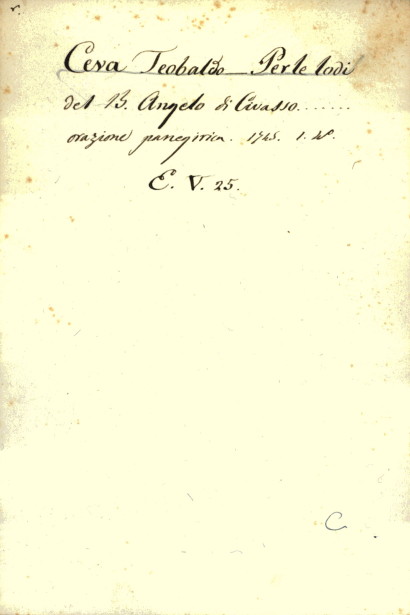 r.
Ceva Teobaldo Per le lodi
del B. Angelo di Civasso.......
orazione panegirica. 1725. 1. 4º.
E. V. 25.
C